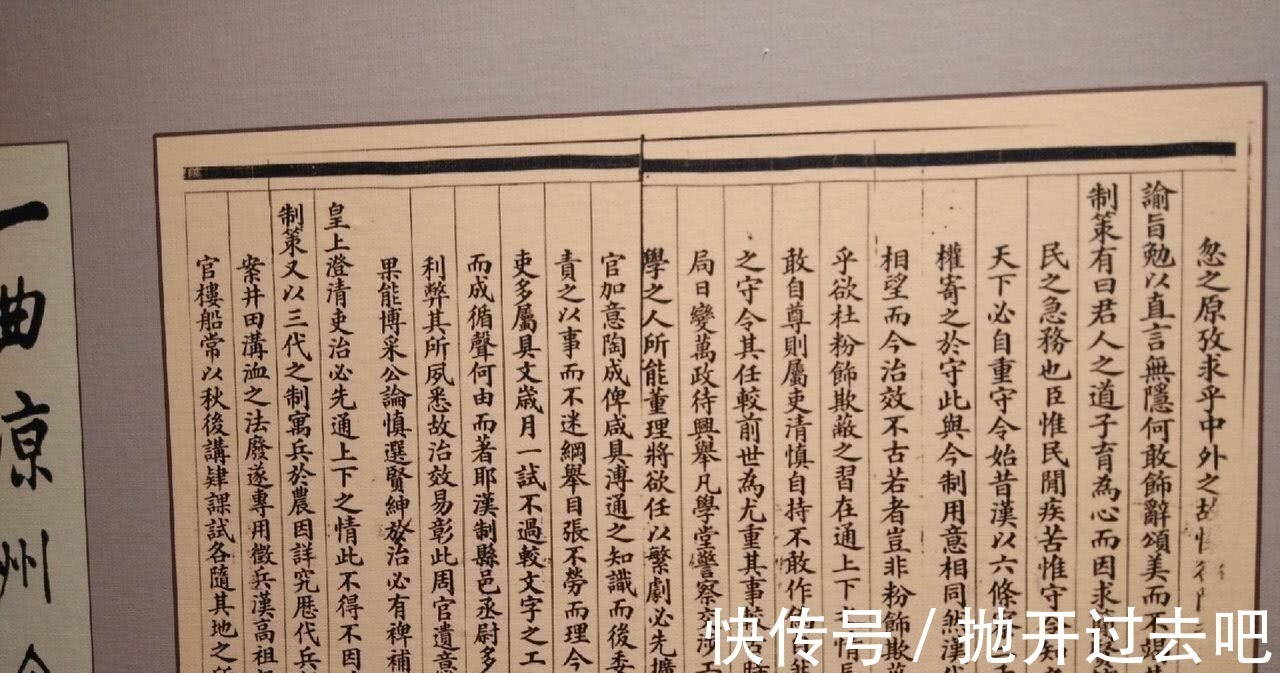 忽之原攷求乎中外之故
諭旨勉以直言無隱何敢飾辭頌美而不竭其
制策有曰君人之道子育為心而因求
民之急務也臣惟民間疾苦惟守令知
天下必自重守令始昔漢以六條
權寄之於守此與今制用意相同然漢代
相望而今治效不古若者豈非粉飾欺蔽
乎欲杜粉飾欺蔽之習在通上下之情長
敢自尊則屬吏清慎自持不敢作
之守令其任較前世為尤重其事
局日變萬政待興舉凡學堂警察交涉工
學之人所能董理將欲任以繁劇必先擴
官加意陶成俾咸具溥通之知識而後委
責之以事而不迷綱舉目張不勞而理今
吏多屬具文歲月一試不過較文字之工
而成循聲何由而著耶漢制縣邑丞尉多
利弊其所夙悉故治效易彰此周官遺意
果能博采公論慎選賢紳於治必有裨補
皇上澄清吏治必先通上下之情此不得不因
制策又以三代之制寓兵於農因詳究歷代兵
案井田溝洫之法廢遂專用徵兵漢高祖
官樓船常以秋後講肄課試各隨其地之所
一曲
涼州
快传号/抛开过去吧